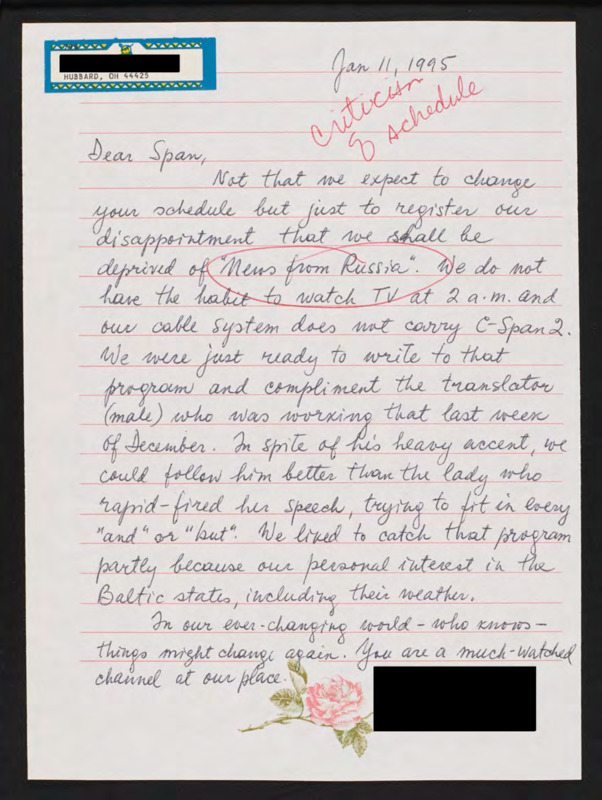 HUBBARD, OH 44425
Jan 11, 1995
Criticism
of schedule
Dear Span,
Not that we expect to change
your schedule but just to register our
disappointment that we shall be
deprived of "News from Russia". We do not
have the habit to watch TV at 2 a.m. and
our cable system does not carry C-Span 2.
We were just ready to write to that
program and compliment the translator
(male) who was working that last week
of December. In spite of his heavy accent, we
could follow him better than the lady who
rapid-fired her speech, trying to fit in every
"and" or "but". We liked to catch that program
partly because our personal interest in the
Baltic states, including their weather.
In our ever-changing world - who knows -
things might change again. You are a much-watched
channel at our place.